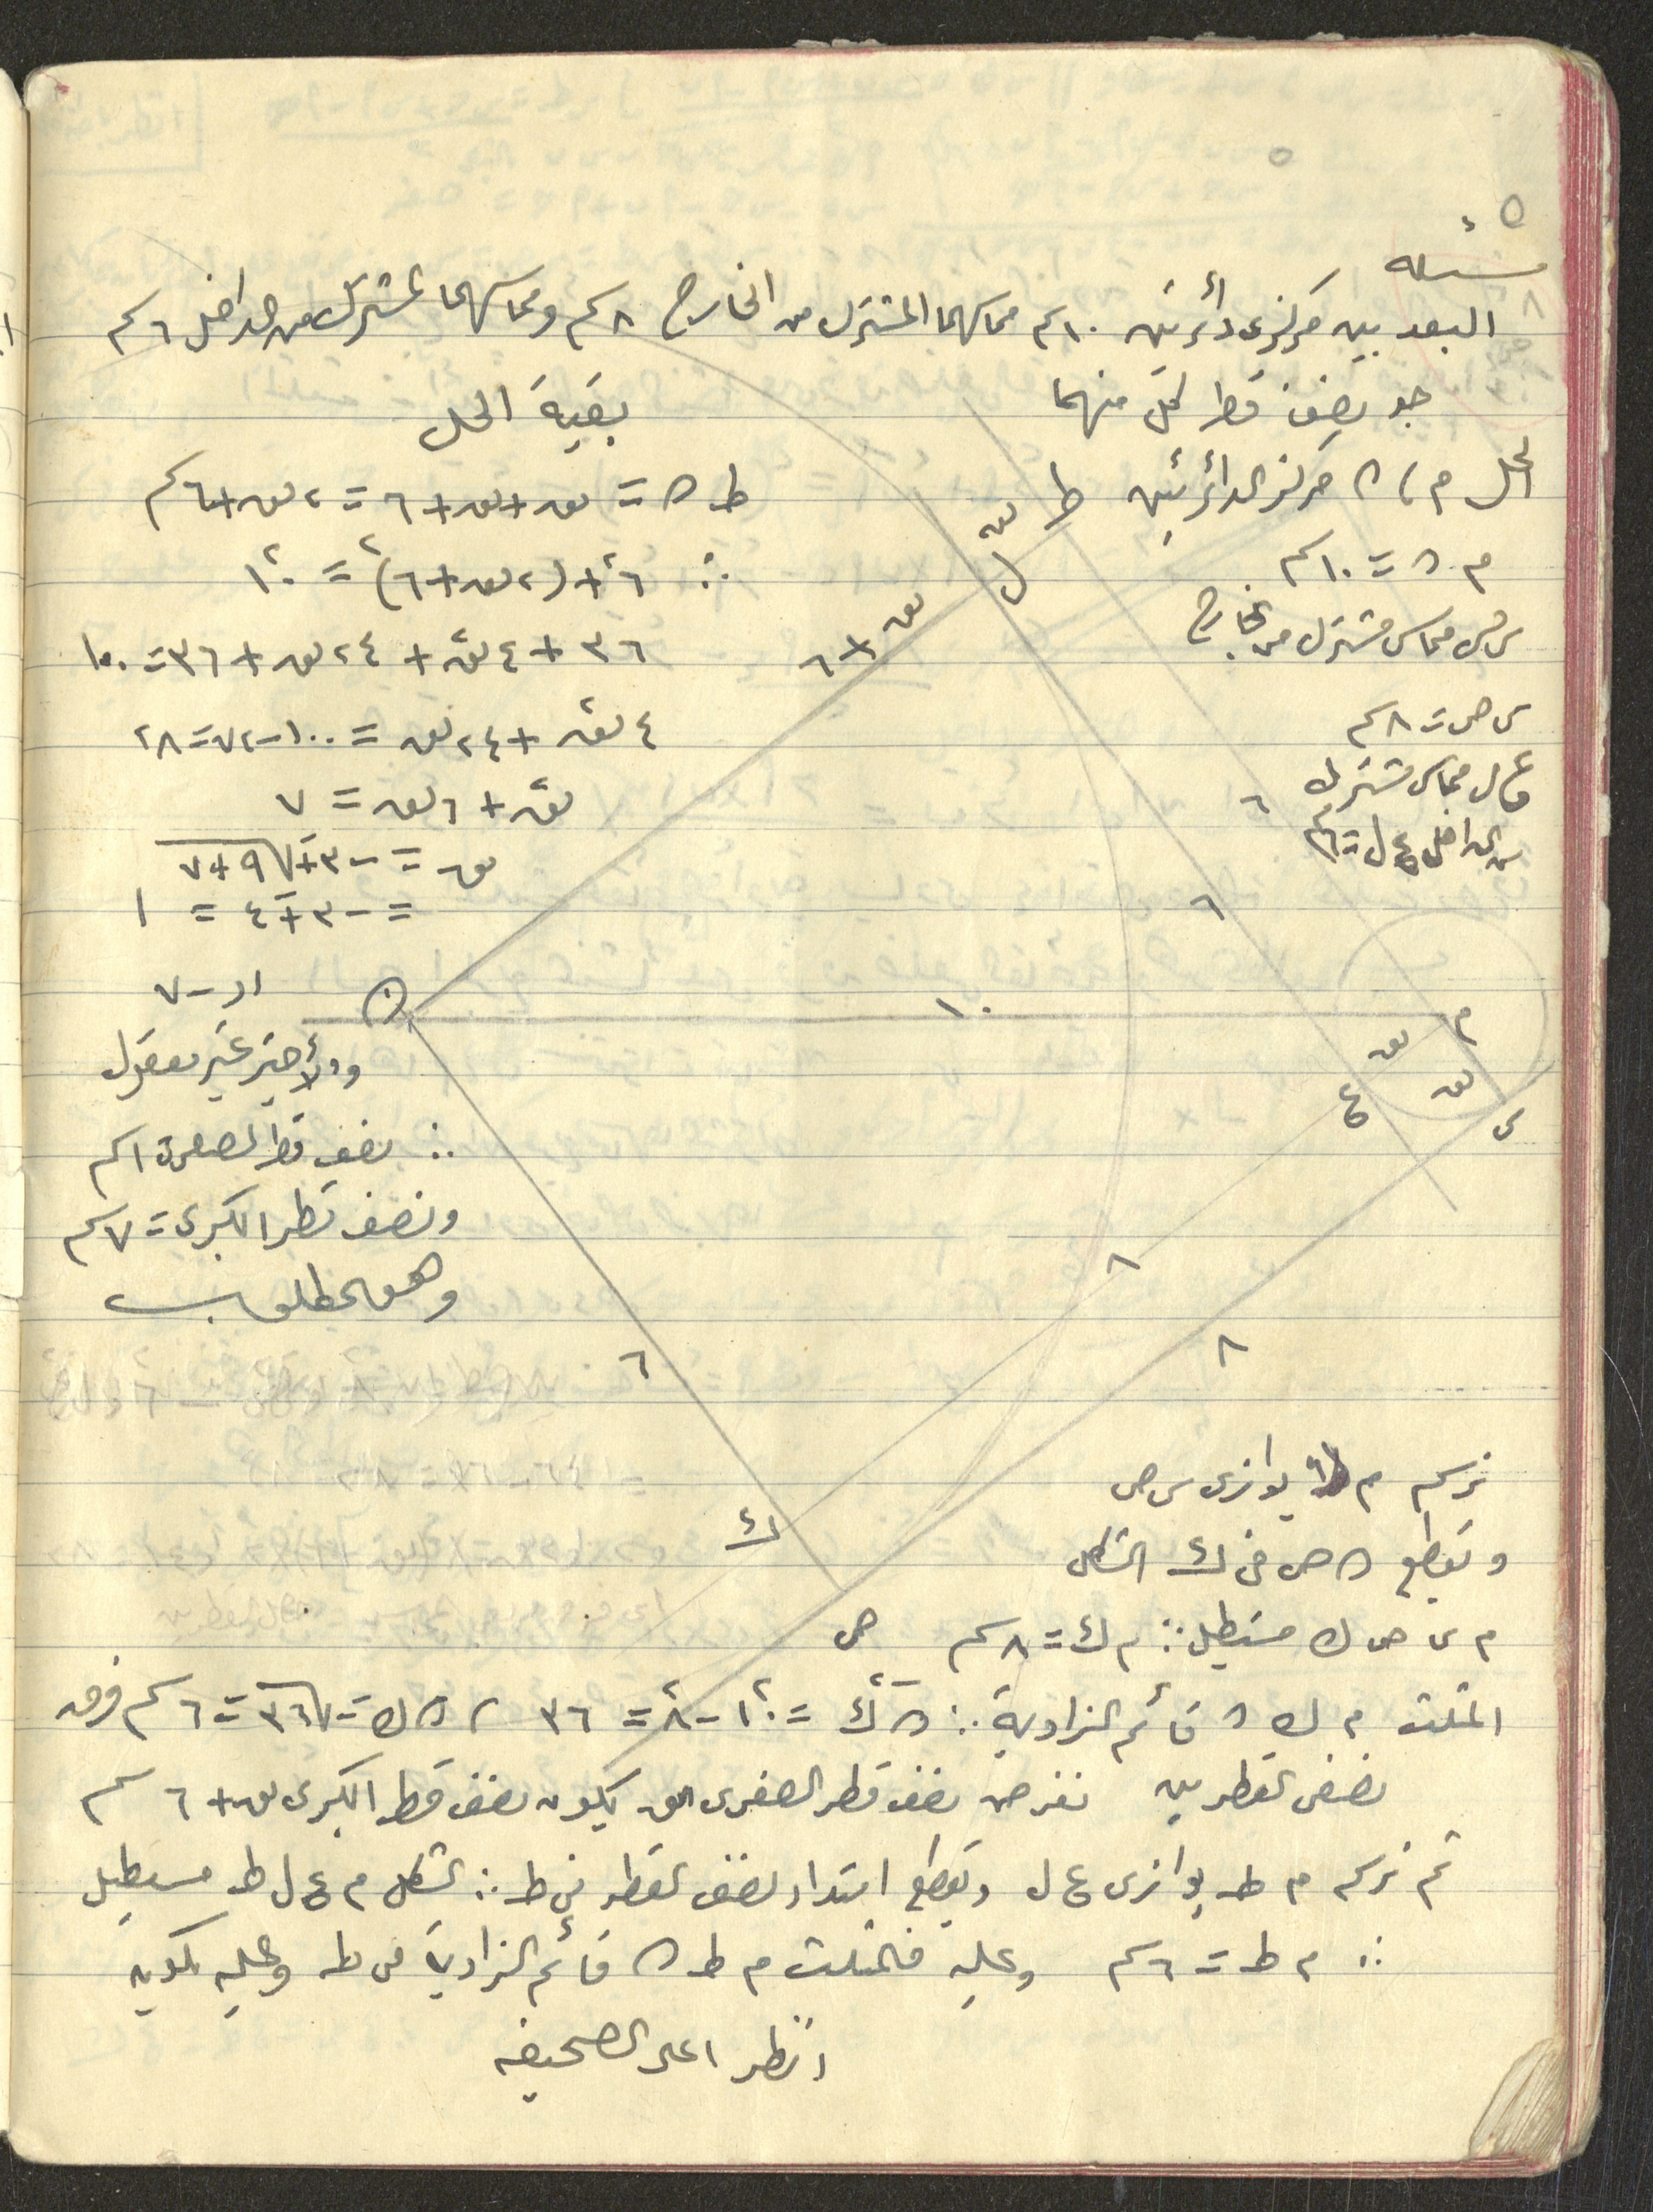 ٥
مسئله
البعد بين مركزى دائرتين ١٠ سم مماسهما المشترك من الخارج ٨ سم ومماسهما المشترك من الداخل ٦ سم
جد نصف قطر كل منهما
الحل م، ن مركز الدائرتين
م ن = ١٠ سم
س ص مماس مشترك من الخارج
س ص = ٨ سم
ع ل مماس مشترك
من الداخل ع ل = ٦ سم
بقية الحل
ط ن = نق + نق + ٦ = ٢ نق + ٦ سم
∴ ٦² + (٢ نق + ٦)² = ١٠²
٣٦ + ٤ نق² + ٢٤ نق + ٣٦ = ١٠٠
٤ نق² + ٢٤ نق = ١٠٠ - ٧٢ = ٢٨
نق² + ٦ نق = ٧
نق = -٣ ± √٩ + ٧
= -٣ ± ٤ = ١
او -٧
والأخير غير معقول
∴ نصف قطر الصغرى ١ سم
ونصف قطر الكبرى = ٧ سم
وهو المطلوب
ط
نق
ل
نق + ٦
٦
٦
ن
١٠
م
نق
نق
ع
س
٨
٨
٦
ك
ص
نرسم م ك يوازى س ص
وتقطع ن ص فى ك الشكل
م س ص ك مستطيل ∴ م ك = ٨ سم
المثلث م ك ن قائم الزاوية ∴ ن ك² = ١٠² - ٨² = ٣٦ ، ن ك = √٣٦ = ٦ سم فرق
نصفى القطرين نفرض نصف قطر الصغرى نق يكون نصف قطر الكبرى نق + ٦ سم
ثم نرسم م ط يوازى ع ل ويقطع امتداد نصف القطر فى ط ∴ الشكل م ع ل ط مستطيل
∴ م ط = ٦ سم وعليه فالمثلث م ط ن قائم الزاوية فى ط وعليه يكون
انظر اعلى الصحيفه